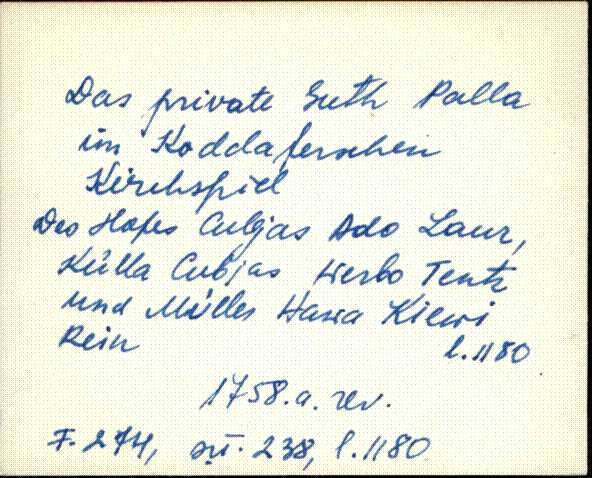 Das private Guth Palla
im Koddaferschen
Kirchspiel
Des Hofes Cubjas Ado Laur,
Külla Cubjas Werbo Tentz
und Mülles Hawa Kiewi
Rein l.1180
1758.a. rev.
F. 274, nü. 238, l.1180